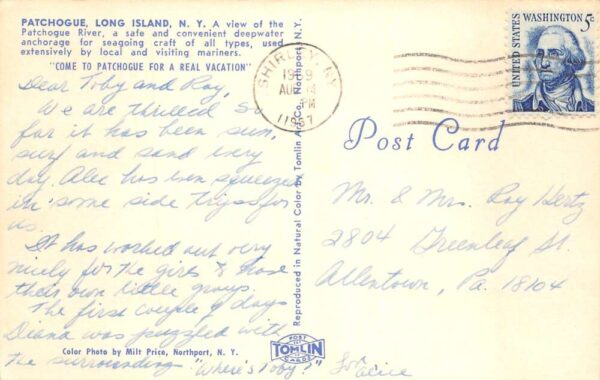 PATCHOGUE, LONG ISLAND, N. Y. A view of the
Patchogue River, a safe and convenient deepwater
anchorage for seagoing craft of all types, used
extensively by local and visiting mariners.
"COME TO PATCHOGUE FOR A REAL VACATION"
Dear Toby and Roy,
We are thrilled so
far it has been sun,
surf and sand every
day. Alec has even squeezed
in some side trips for
us.
It has worked out very
nicely for the girls & those
their own little group.
The first couple of days
Diana was puzzled with
the surroundings "Where's Toby?"
Color Photo by Milt Price, Northport, N. Y.
Reproduced in Natural Color by Tomlin Art Co., Northport, N.Y.
POST
TOMLIN
CARDS
SHIRLEY, NY
AUG
PM
1967
UNITED STATES
WASHINGTON 5c
Post Card
Mr. & Mrs. Roy Hertz
2804 Greenleaf St.
Allentown, Pa. 18104